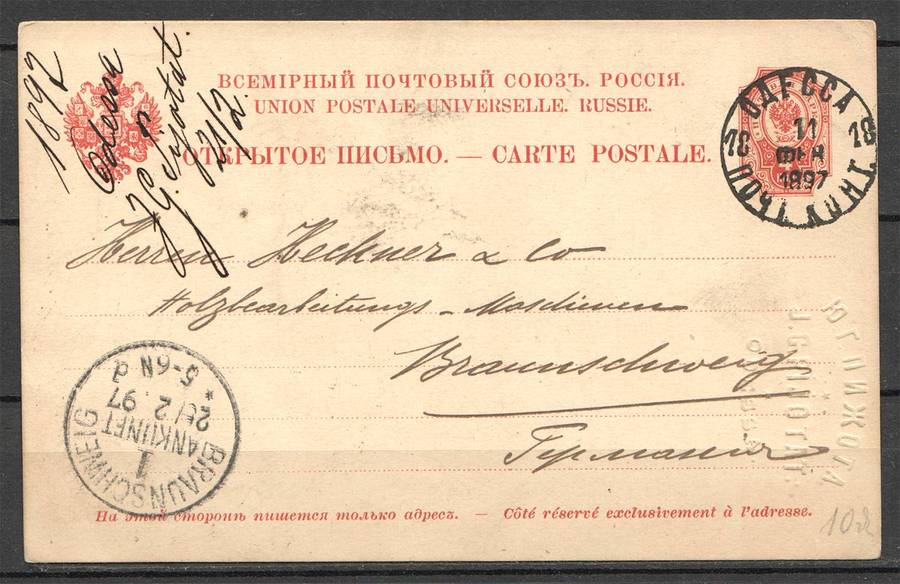 1897
Odessa
J. G. Sijotat.
21/2.
ВСЕМІРНЫЙ ПОЧТОВЫЙ СОЮЗЪ. РОССІЯ.
UNION POSTALE UNIVERSELLE. RUSSIE.
ОТКРЫТОЕ ПИСЬМО. — CARTE POSTALE.
ОДЕССА
18 11 18
ФЕВ
1897
Herrn Heckner & Co
Holzbearbeitungs - Maschinen
Braunschweig
Германия
BRAUNSCHWEIG
1
ANKUNFT
2. 97
* 5-6N d
На этой сторонѣ пишется только адресъ. — Côté réservé exclusivement à l'adresse.